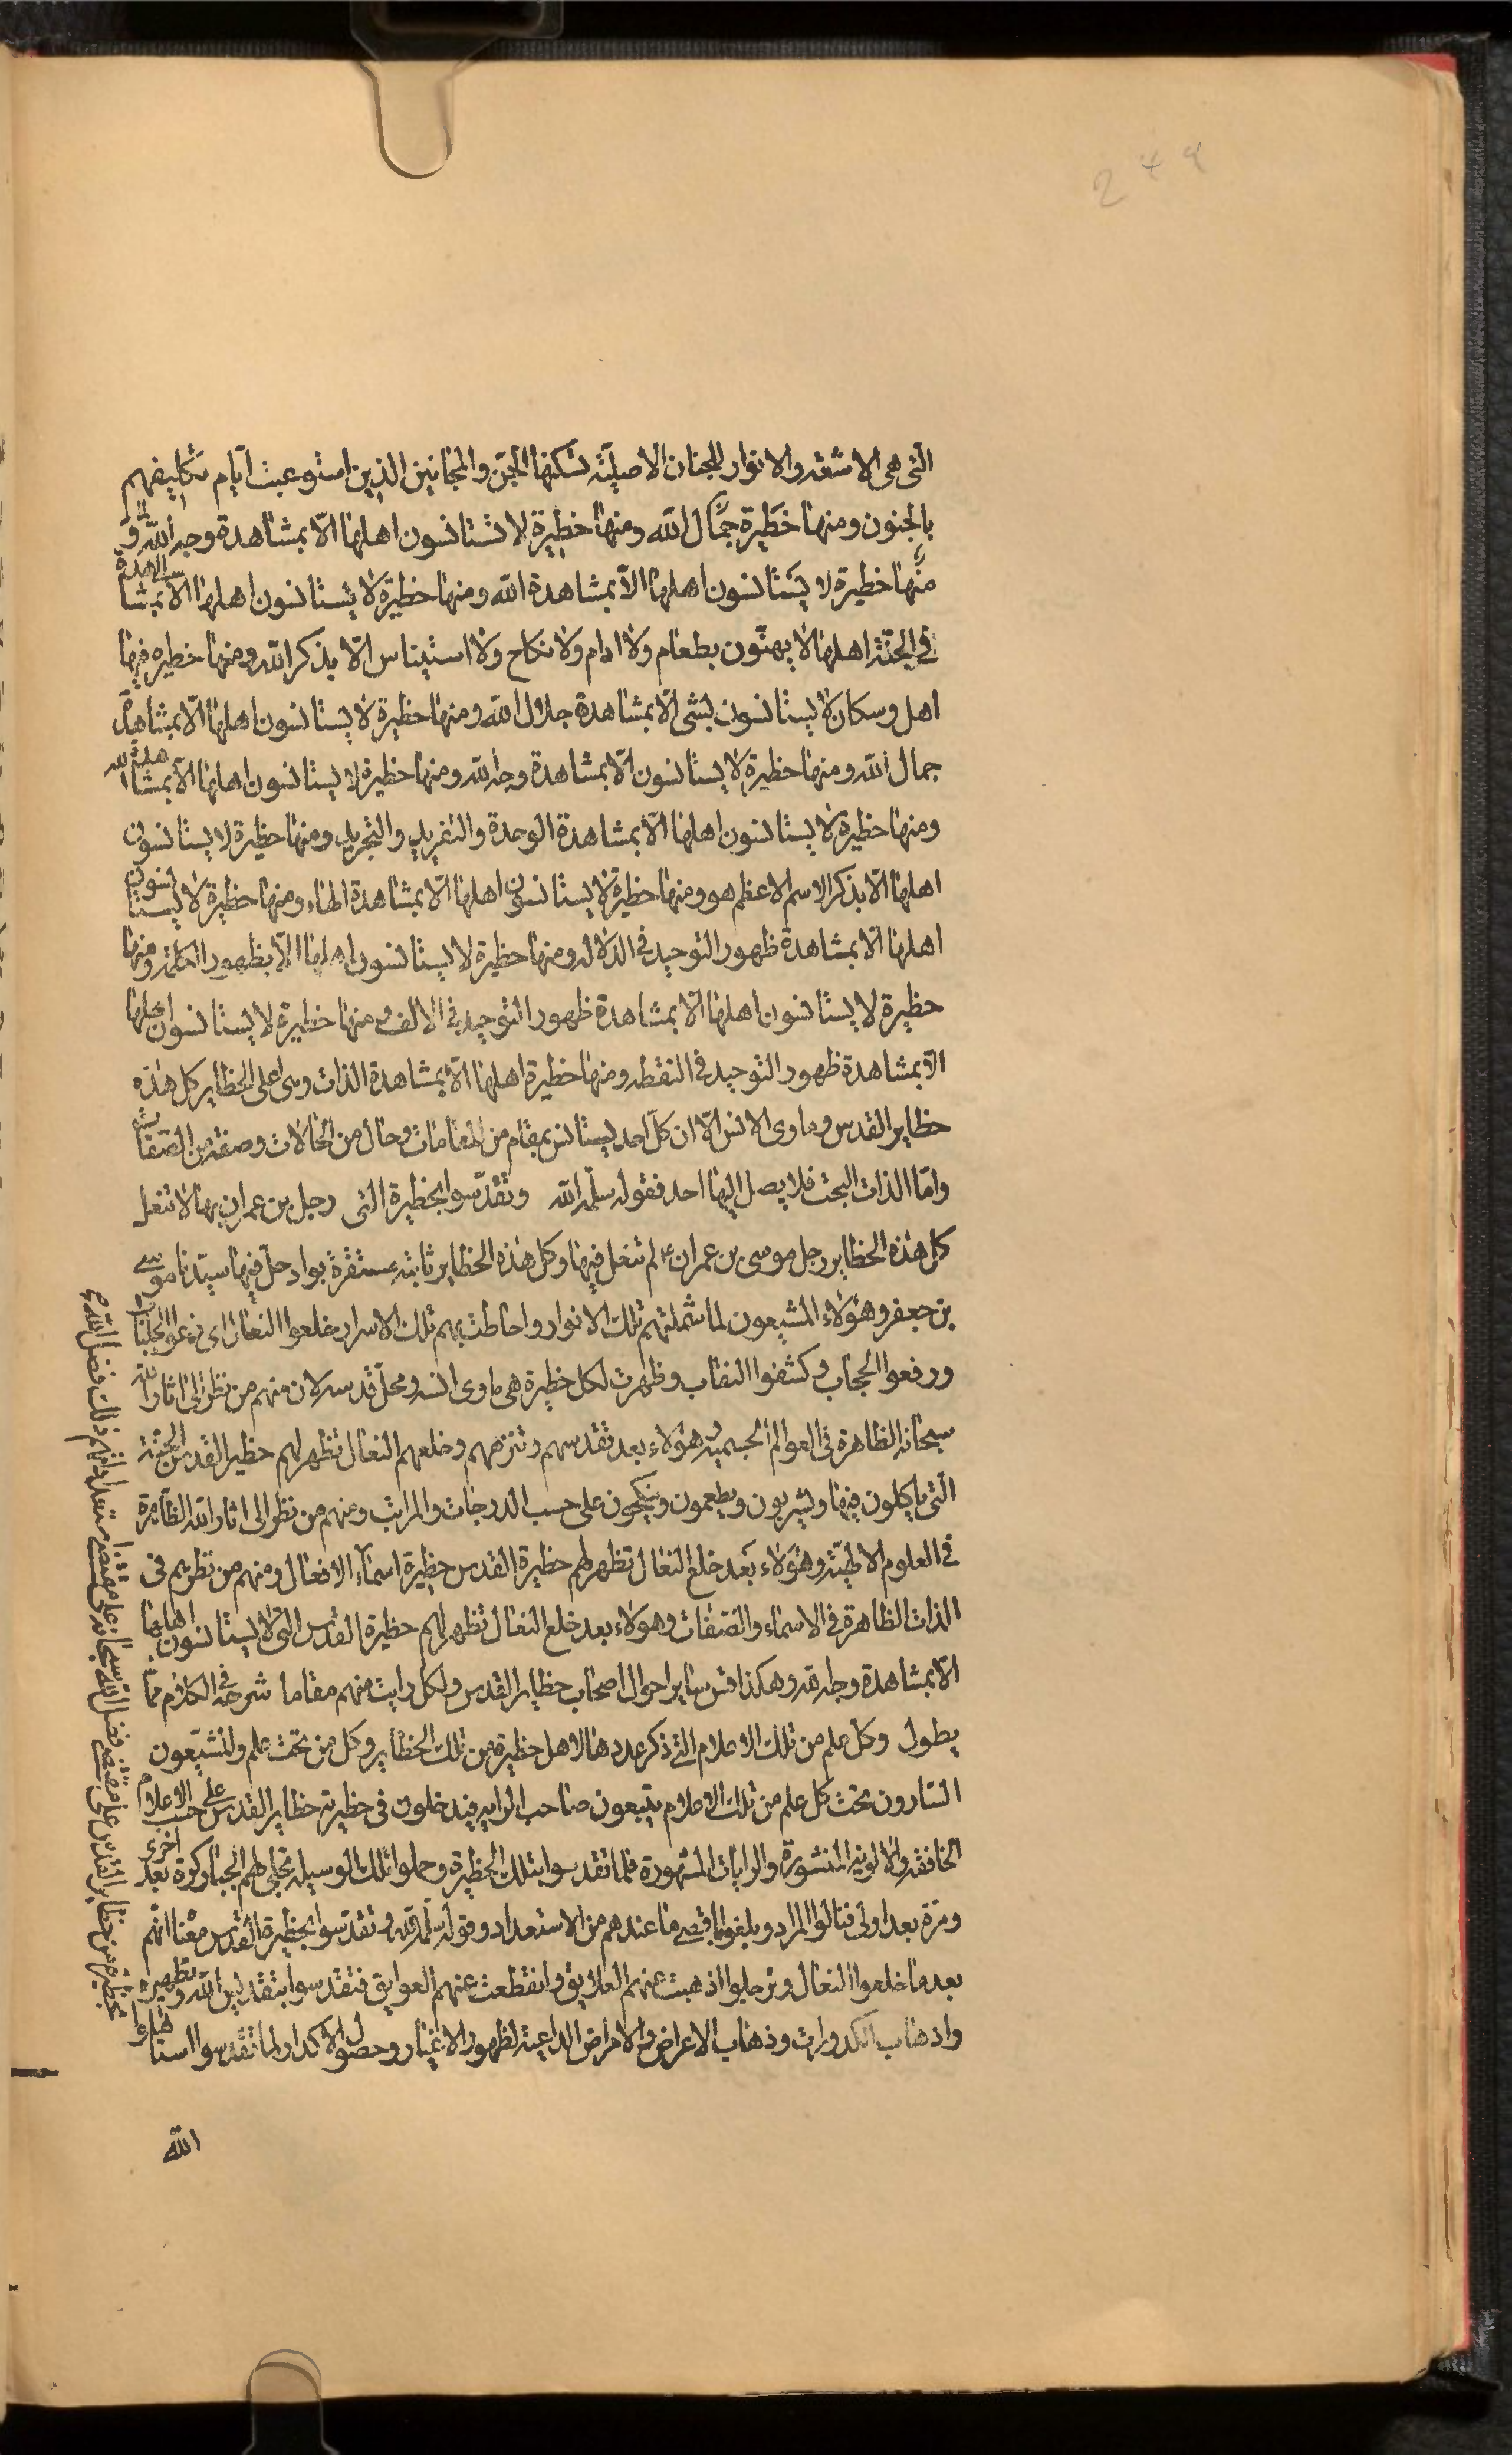 249
التى هى الاشعة والانوار للجنان الاصلية تسكنها الجن والمجانين الذين استوعبت ايام تكليفهم
بالجنون ومنها حظيرة جمال الله ومنها حظيرة لا تستانسون اهلها الّا بمشاهدة وجه الله و
منها حظيرة لا يستانسون اهلها الّا بمشاهدة الله ومنها حظيرة لا يستانسون اهلها الا بمشا
فى الجنة اهلها لا يهتّون بطعام ولا ادام ولا نكاح ولا استيناس الّا بذكر الله ومنها حظيره فيها
اهل وسكان لا يستانسون بشى الّا بمشاهدة جلال الله ومنها حظيرة لا يستانسون اهلها الّا بمشاهدة
جمال الله ومنها حظيرة لا يستانسون الّا بمشاهدة وجه الله ومنها حظيرة لا يستانسون اهلها الّا بمشاهدة الله
ومنها حظيرة لا يستانسون اهلها الّا بمشاهدة الوحدة والتفريد والتجريد ومنها حظيرة لا يستانسون
اهلها الّا بذكر الاسم الاعظم هو ومنها حظيرة لا يستانسون اهلها الّا بمشاهدة الهاء ومنها حظيرة لا يستانسون
اهلها الّا بمشاهدة ظهور التوحيد فى الدلالة ومنها حظيرة لا يستانسون اهلها الّا بظهور الكلمة ومنها
حظيرة لا يستانسون اهلها الّا بمشاهدة ظهور التوحيد فى الالف ومنها حظيرة لا يستانسون اهلها
الّا بمشاهدة ظهور التوحيد فى النقطه ومنها حظيرة اهلها الّا بمشاهدة الذات وهى اعلى الحظاير كل هذه
حظاير القدس وماوى الانس الّا ان كل احد يستانس بمقام من المقامات وحال من الحالات وصفة من الصفات
وامّا الذات البحت فلا يصل اليها احد فقوله سلّمه الله وتقدّسوا بحظيرة التى رجل بن عمران بها لا تنعل
كل هذه الحظاير رجل موسى بن عمران ع لم تنعل فيها وكل هذه الحظاير ثابته مستقرة بواد حلّ فيها سيّدنا موسى
بن جعفر وهؤلاء المشيعون لما شملتهم تلك الانوار واحاطت بهم تلك الاسرار خلعوا النعال اى نزعوا الجلباب
ورفعوا الحجاب وكشفوا النقاب وظهرت لكل حظيرة هى ماوى انسه ومحلّ قدسه لان منهم من نظر الى اثار الله
سبحانه الظاهرة فى العوالم الجسميه وهؤلاء بعد تقدسهم وتنزههم وخلعهم النعال تظهر لهم حظير القدس الجنة
التى ياكلون فيها ويشربون ويطعمون وينكحون على حسب الدرجات والمراتب ومنهم من نظر الى اثار الله الظاهرة
فى العلوم الالهيّة وهؤلاء بعد خلع النعال تظهر لهم حظيرة القدس حظيرة اسماء الافعال ومنهم من نظرهم فى
الذات الظاهرة فى الاسماء والصفات وهولاء بعد خلع النعال تظهر لهم حظيرة القدس التى لا يستانسون اهلها
الا بمشاهدة وجه الله وهكذا قس ساير احوال اصحاب حظاير القدس ولكل رايت منهم مقاما شرحه فى الكلام مما
يطول وكل علم من تلك الاعلام التى ذكر عددها لاهل حظيرة من تلك الحظاير وكل من تحت علم والمشيّعون
السّارون تحت كل علم من تلك الاعلام يتبعون صاحب الرايه فيدخلون فى حظيرته حظاير القدس على حسب الاعلام
الخافقه والالوية المنشورة والرايات المشهورة فلما تقدسوا بتلك الحظيرة وحملوا تلك الوسيله تجلى لهم الجبار كرة بعد اخرى
ومرّة بعد اولى فنالوا المراد وبلغوا ما اقتضى ما عندهم من الاستعداد وقوله سلّمه الله وتقدّسوا بحظيرة القدس معناه انهم
بعد ما خلعوا النعال وترحلوا اذهبت عنهم العلايق وانقطعت عنهم العوايق فتقدسوا بتقديس الله وتطهيره
واذهاب الكدورات وذهاب الاعراض والامراض الداعية لظهور الاغيار وحصول الاكدار ولما تقدسوا استاهلوا
الله